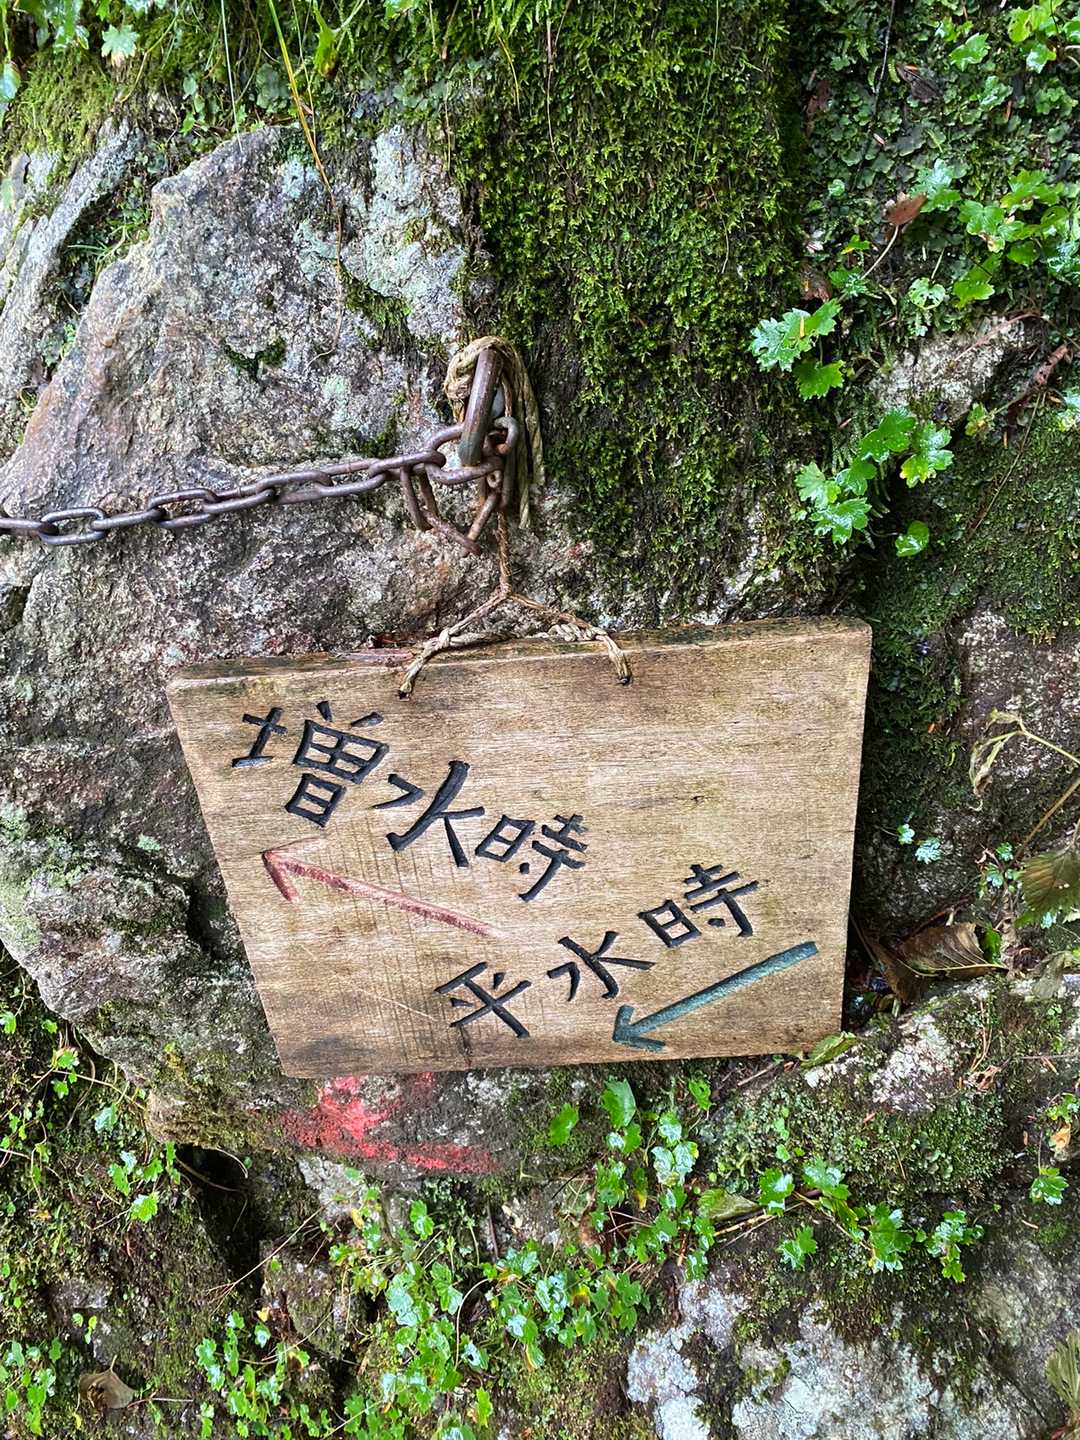 増水時
平水時